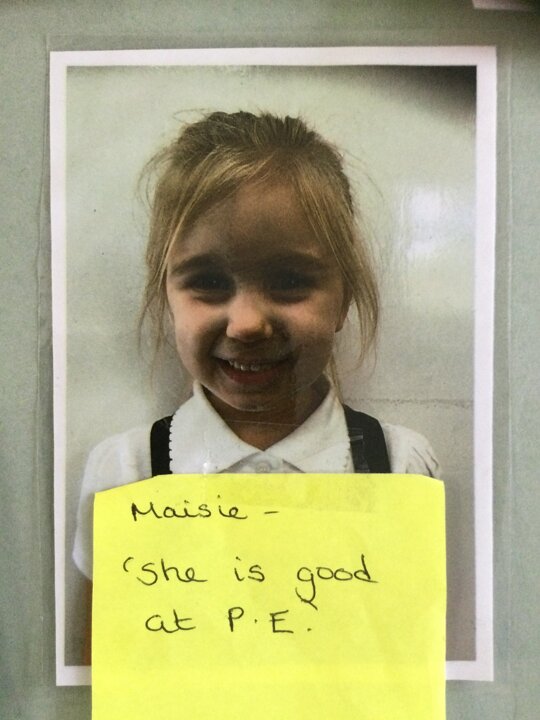 Maisie -
'She is good
at P.E.'